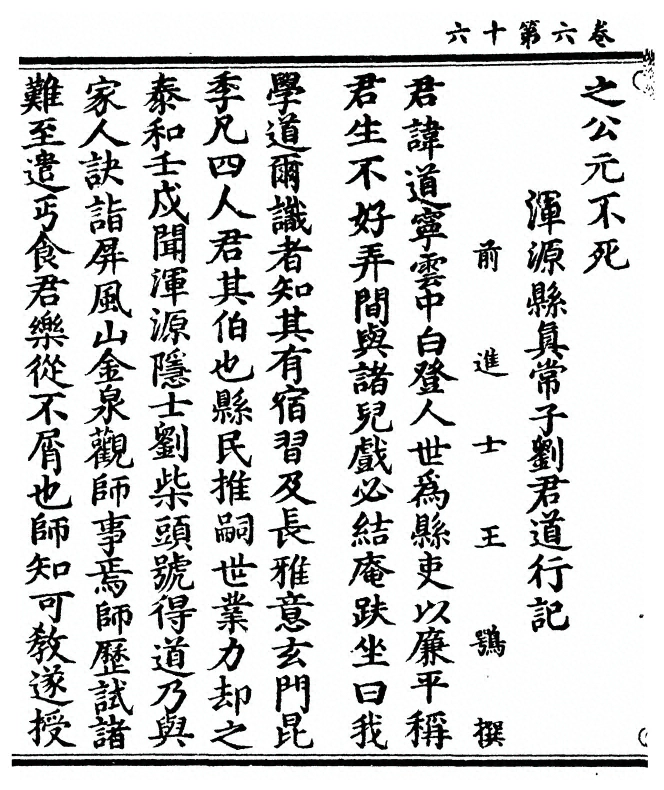 卷六第十六
之公元不死
渾源縣真常子劉君道行記
前進士王鶚撰
君諱道寧雲中白登人世為縣吏以廉平稱
君生不好弄間與諸兒戲必結庵趺坐曰我
學道爾識者知其有宿習及長雅意玄門昆
季凡四人君其伯也縣民推嗣世業力却之
泰和壬戌聞渾源隱士劉柴頭號得道乃與
家人訣詣屏風山金泉觀師事焉師歷試諸
難至遣丐食君樂從不屑也師知可教遂授